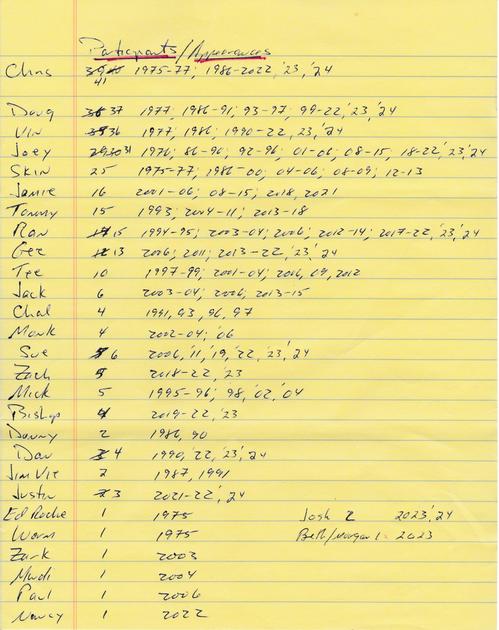 Participants/Appearances
Chris 39 40 41 1975-77; 1986-2022, '23, '24
Doug 36 37 1977; 1986-91; 93-97; 99-22, '23, '24
Vin 35 36 1977; 1986; 1990-22, 23, '24
Joey 29 30 31 1976; 86-90; 92-96; 01-06; 08-15, 18-22, '23, '24
Skin 25 1975-77; 1986-00; 04-06; 08-09; 12-13
Jamie 16 2001-06; 08-15; 2018, 2021
Tommy 15 1993; 2004-11; 2013-18
Ron 15 1994-95; 2003-04; 2006; 2012-14; 2017-22, '23, '24
Gee 12 13 2006; 2011; 2013-22, '23, '24
Tee 10 1997-99; 2001-04; 2006, 09, 2012
Jack 6 2003-04; 2006; 2013-15
Chal 4 1991, 93, 96, 97
Monk 4 2002-04; '06
Sue 5 6 2006, '11, '19, '22, '23, '24
Zach 5 2018-22, '23
Mick 5 1995-96; 98, '02, '04
Bishop 4 2019-22, '23
Danny 2 1986, 90
Dav 4 1990, '22, '23, '24
Jim Vie 2 1987, 1991
Justin 2 3 2021-22, '24
Ed Roche 1 1975 Josh 2 2023, '24
Worm 1 1975 Beth/Morgan 1 2023
Zark 1 2003
Mudi 1 2004
Paul 1 2006
Nancy 1 2022